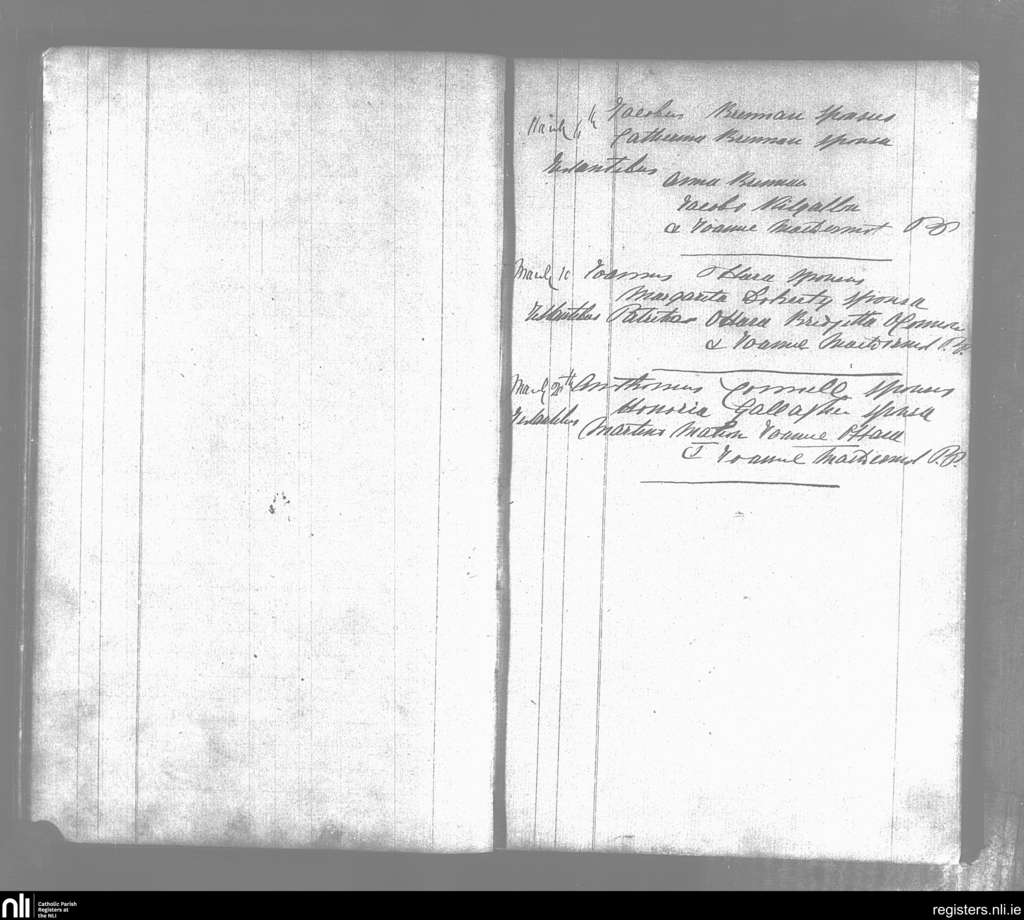 March 6th Jacobus Brennan sponsus
Catherina Brennan sponsa
Testantibus
Anna Brennan
Jacobo Kilgallon
& Joanne MacDermot P P
March 10 Joannes O Hara sponsus
Margarita Doherty sponsa
Testantibus Patritio O Hara Bridgitta O Connor
& Joanne MacDermot P.P.
March Anthonius Connell sponsus
Honoria Gallagher sponsa
Testantibus Martino Mahon Joanne O Hara
& Joanne MacDermot P.P.
nli Catholic Parish
Registers at
the NLI
registers.nli.ie